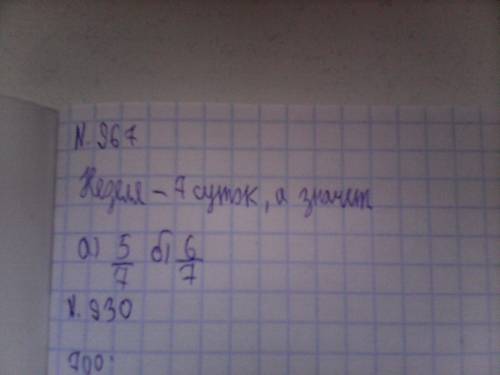 N. 967
Неделя – 7 суток, а значит
а) 5/7 б) 6/7
N. 930
700: